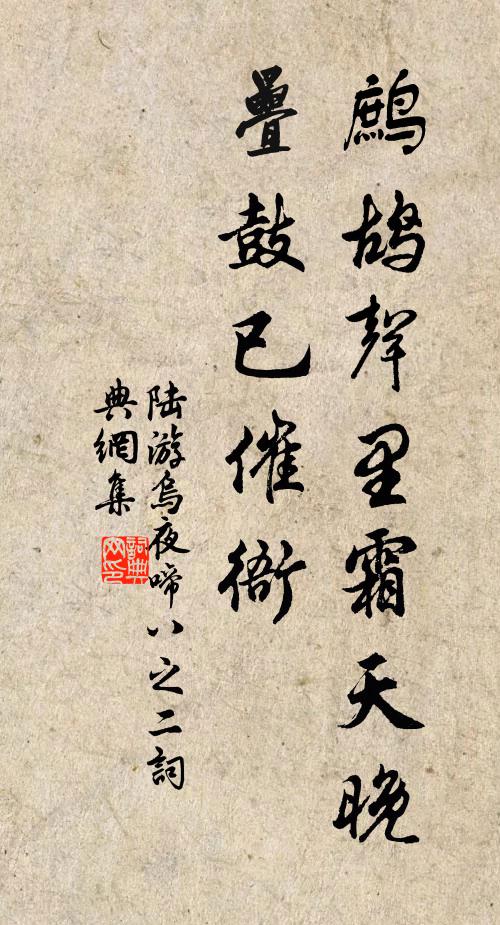 鷓鴣聲里霜天晚
疊鼓已催衙
陸游烏夜啼八之二詞
典網集
詞典网印